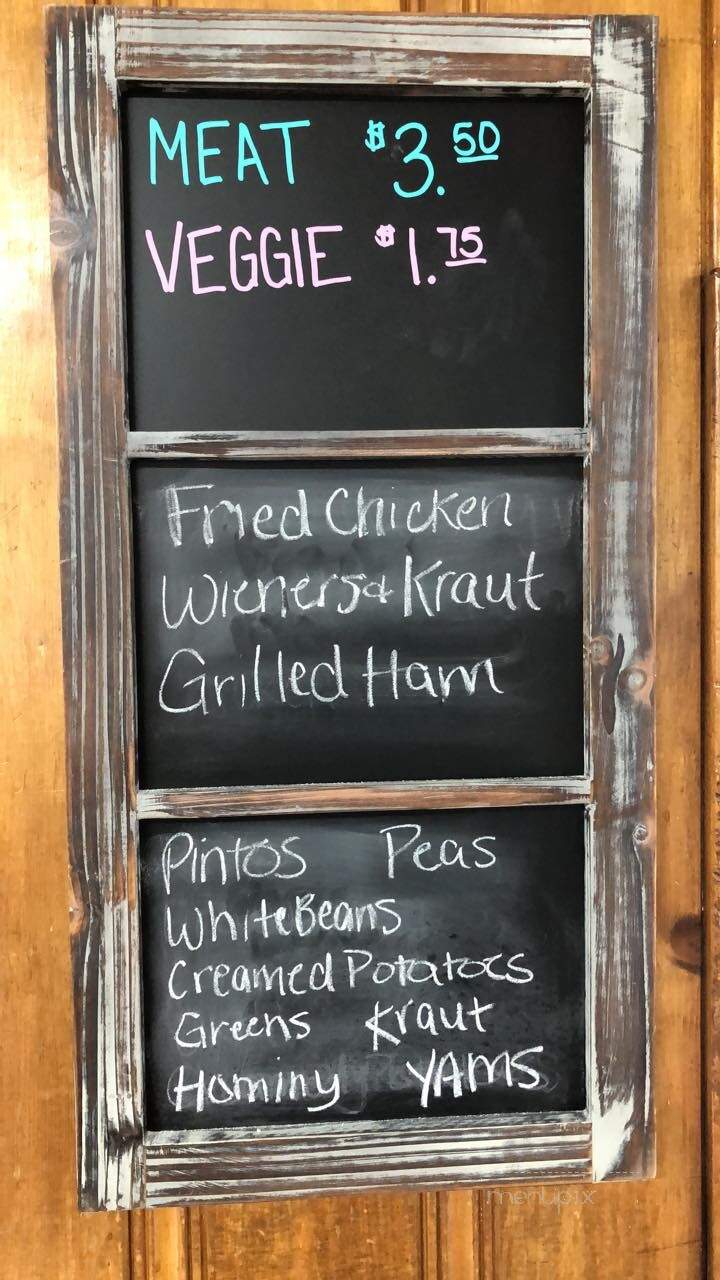 MEAT $3.50
VEGGIE $1.75
Fried Chicken
Wieners & Kraut
Grilled Ham
Pintos Peas
White Beans
Creamed Potatoes
Greens Kraut
Hominy YAMS
menupix